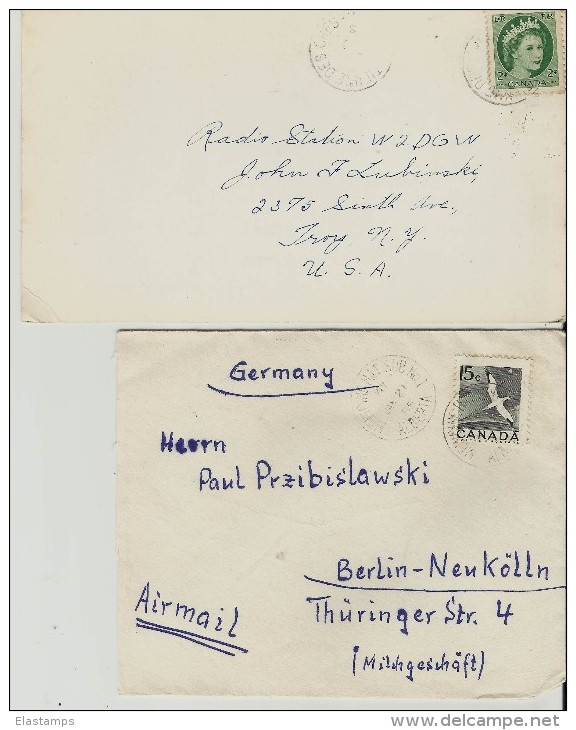 2¢ 2¢
CANADA
Radio Station W2DGW
John F Lubinski,
2375 Sixth Ave,
Troy N.Y.
U.S.A.
Germany
15c
CANADA
ALBERTA
Herrn
Paul Przibislawski
Berlin-Neukölln
Airmail
Thüringer Str. 4
(Milchgeschäft)
Elastamps
delcampe.net